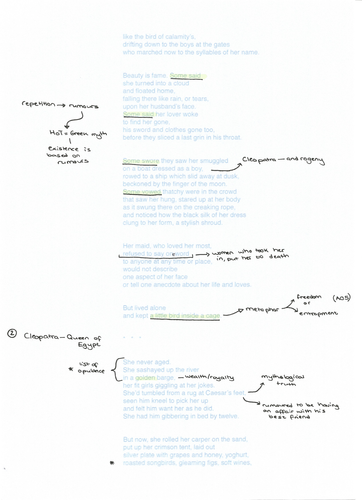 like the bird of calamity's,
drifting down to the boys at the gates
who marched now to the syllables of her name.
Beauty is fame. Some said
she turned into a cloud
and floated home,
falling there like rain, or tears,
upon her husband's face.
Some said her lover woke
to find her gone,
his sword and clothes gone too,
before they sliced a last grin in his throat.
repetition → rumours
HoT = Greek myth
existence is
based on
rumours
Some swore they saw her smuggled
on a boat dressed as a boy,
rowed to a ship which slid away at dusk,
beckoned by the finger of the moon.
Some vowed that they were in the crowd
that saw her hung, stared up at her body
as it swung there on the creaking rope,
and noticed how the black silk of her dress
clung to her form, a stylish shroud.
Cleopatra – androgeny
Her maid, who loved her most,
refused to say one word
to anyone at any time or place,
would not describe
one aspect of her face
or tell one anecdote about her life and loves.
women who took her
in, put her to death
But lived alone
and kept a little bird inside a cage.
metaphor
freedom (AO5)
or
entrapment
② Cleopatra – Queen of
Egypt
. . .
She never aged.
She sashayed up the river
in a golden barge,
her fit girls giggling at her jokes.
She'd tumbled from a rug at Caesar's feet,
seen him kneel to pick her up
and felt him want her as he did.
She had him gibbering in bed by twelve.
* list of
opulence
– wealth/royalty
mythological
truth
rumoured to be having
an affair with his
best friend
But now, she rolled her carpet on the sand,
put up her crimson tent, laid out
silver plate with grapes and honey, yoghurt,
* roasted songbirds, gleaming figs, soft wines,